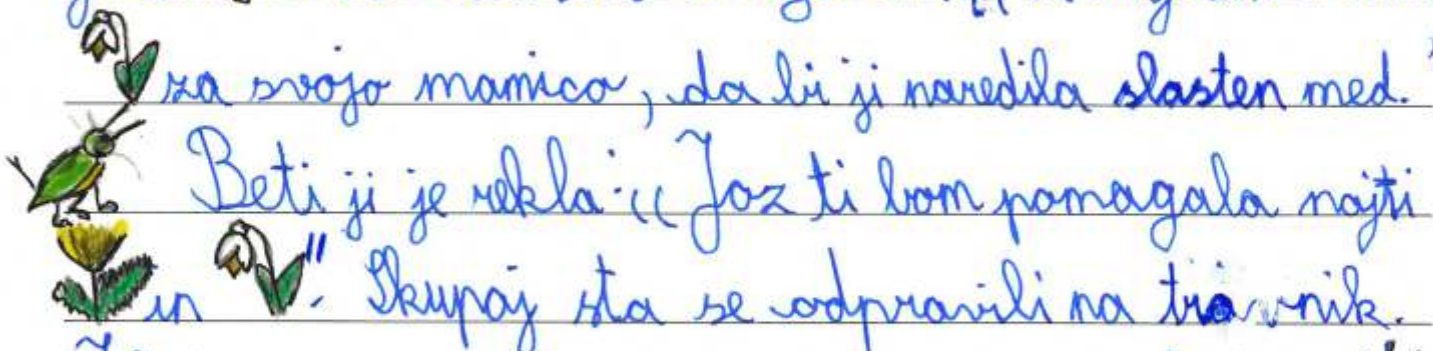 za svojo mamico, da bi ji naredila slasten med."
Beti ji je rekla: "Jaz ti bom pomagala najti
in ". Skupaj sta se odpravili na travnik.